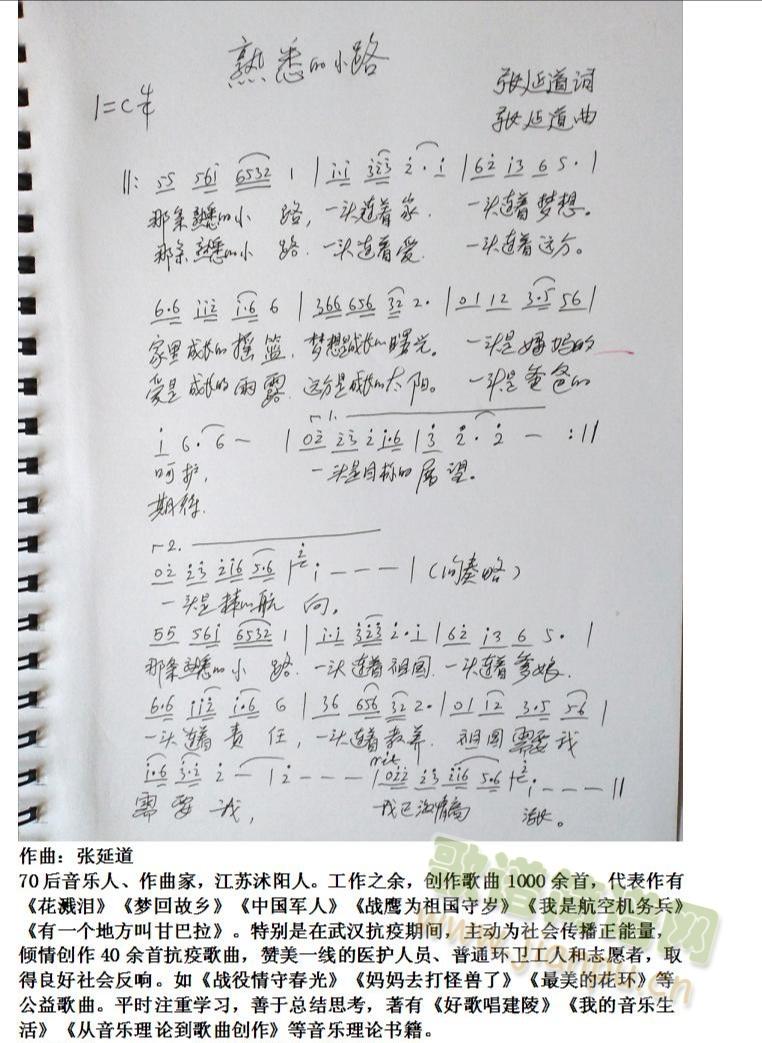 熟悉的小路
1=C 4/4
张延道词
张延道曲
‖: 55 561 6532 1 | 1·1 323 2·1 | 62 13 6 5· |
那条熟悉的小 路，一头连着家. 一头连着梦想。
那条熟悉的小 路. 一头连着爱. 一头连着远方。
6·6 112 1·6 6 | 366 656 32 2· | 01 12 3·5 56 |
家里成长的摇篮. 梦想是成长的曙光。 一头是妈妈的
爱是成长的雨露. 远方是成长的太阳。 一头是爸爸的
1 6·6 — | 02 23 2 1·6 | 3 2·2 — :‖
1.
呵护, 一头是目标的展望。
期待.
2.
02 23 216 5·6 | 1 — — — | (间奏略)
一头是 的航 向。
55 561 6532 1 | 1·1 323 2·1 | 62 13 6 5· |
那条熟悉的小 路. 一头连着祖国. 一头连着爹娘.
6·6 112 1·6 6 | 36 656 32 2· | 01 12 3·5 56 |
一头连着责任，一头连着教养. 祖国需要我
rit
1·6 3·2 2 — | 2 — — — | 022 23 216 5·6 | 1 — — — ‖
需要我， 我已
作曲：张延道
70后音乐人、作曲家，江苏沭阳人。工作之余，创作歌曲1000余首，代表作有
《花溅泪》《梦回故乡》《中国军人》《战鹰为祖国守岁》《我是航空机务兵》
《有一个地方叫甘巴拉》。特别是在武汉抗疫期间，主动为社会传播正能量，
倾情创作40余首抗疫歌曲，赞美一线的医护人员、普通环卫工人和志愿者，取
得良好社会反响。如《战役情守春光》《妈妈去打怪兽了》《最美的花环》等
公益歌曲。平时注重学习，善于总结思考，著有《好歌唱建陵》《我的音乐生
活》《从音乐理论到歌曲创作》等音乐理论书籍。
歌谱简谱网
www.jianpu.cn